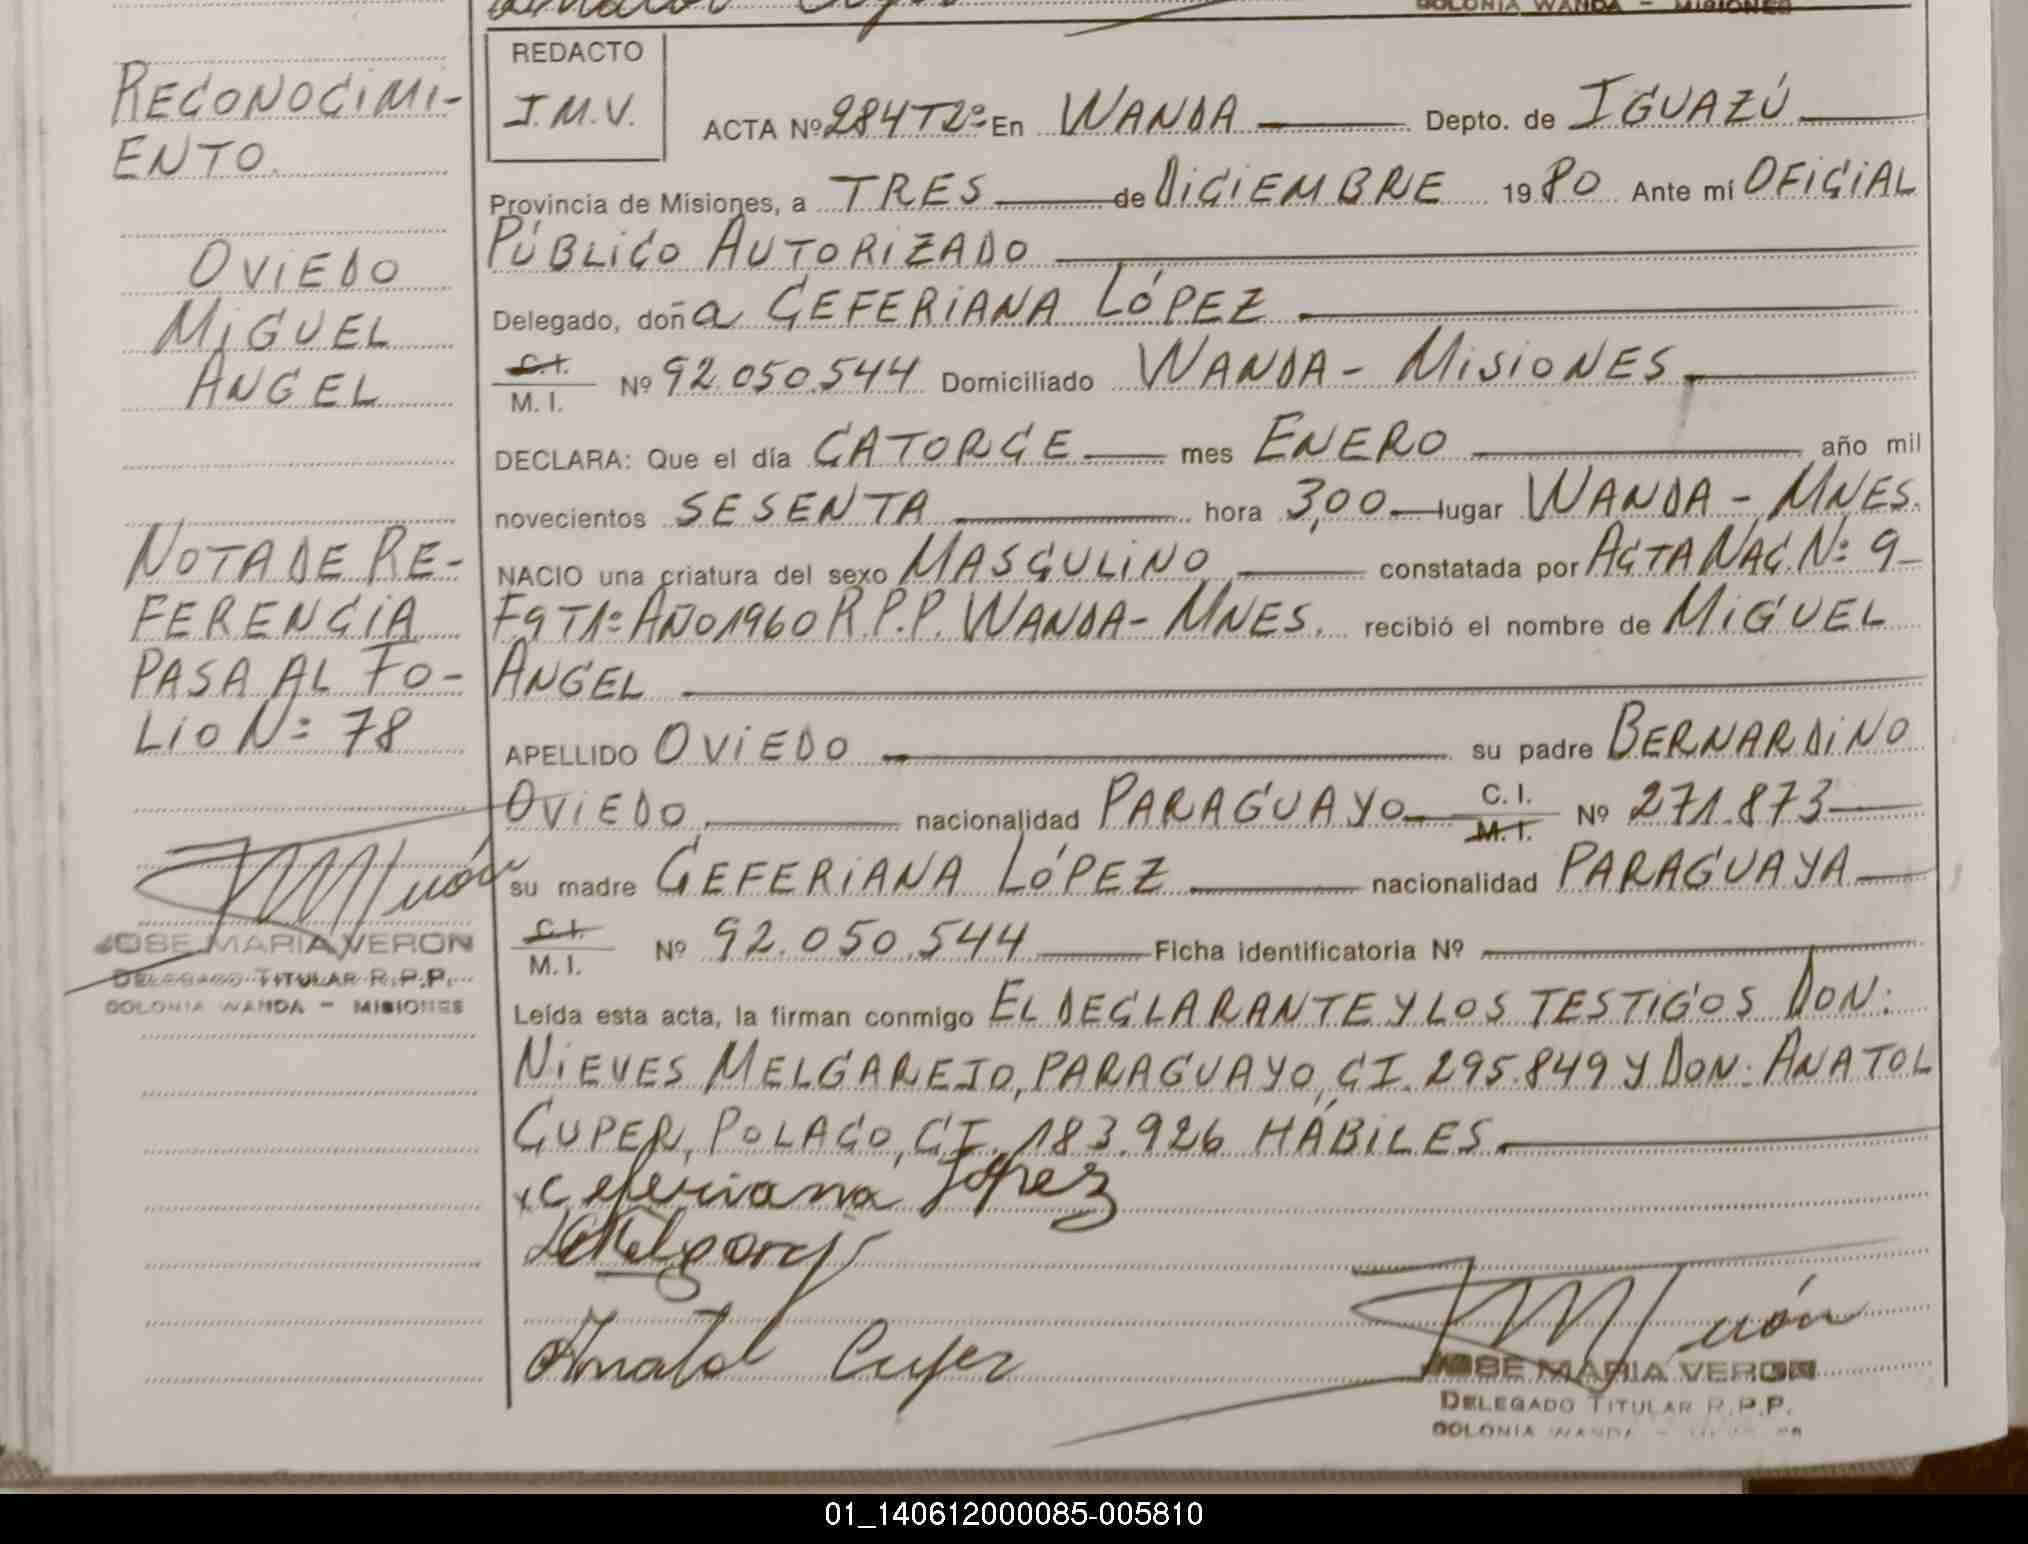 COLONIA WANDA - MISIONES
RECONOCIMI-
ENTO.
OVIEDO
MIGUEL
ANGEL
NOTA DE RE-
FERENCIA
PASA AL FO-
LIO Nº 78
JOSE MARIA VERON
DELEGADO TITULAR R.P.P.
COLONIA WANDA - MISIONES
REDACTO
J.M.V.
ACTA Nº 284 T2º En WANDA Depto. de IGUAZÚ
Provincia de Misiones, a TRES de DICIEMBRE 1980 Ante mí OFICIAL
PÚBLICO AUTORIZADO
Delegado, doña CEFERIANA LÓPEZ
C.I.
M.I. Nº 92.050.544 Domiciliado WANDA - MISIONES
DECLARA: Que el día CATORCE mes ENERO año mil
novecientos SESENTA hora 3,00 lugar WANDA - MNES.
NACIO una criatura del sexo MASCULINO constatada por ACTA NAC. Nº 9
Fº 9 T1º AÑO 1960 R.P.P. WANDA - MNES. recibió el nombre de MIGUEL
ANGEL
APELLIDO OVIEDO su padre BERNARDINO
OVIEDO nacionalidad PARAGUAYO C.I. M.I. Nº 271.873
su madre CEFERIANA LÓPEZ nacionalidad PARAGUAYA
C.I.
M.I. Nº 92.050.544 Ficha identificatoria Nº
Leída esta acta, la firman conmigo EL DECLARANTE Y LOS TESTIGOS DON:
NIEVES MELGAREJO, PARAGUAYO, CI. 295.849 Y DON: ANATOL
CUPER, POLACO, CI. 183.926 HÁBILES.
x Ceferiana López
Anatol Cuper
JOSE MARIA VERON
DELEGADO TITULAR R.P.P.
COLONIA WANDA -
01_140612000085-005810